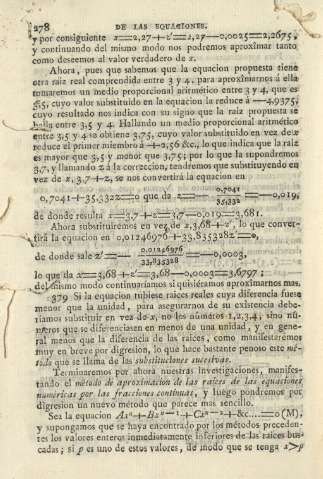 278 DE LAS EQUACIONES.
y por consiguiente x=2,27+z'=2,27—0,0025=2,2675,
y continuando del mismo modo nos podremos aproximar tanto
como deseemos al valor verdadero de x.
Ahora, pues que sabemos que la equacion propuesta tiene
otra raiz real comprendida entre 3 y 4, para aproximarnos á ella
tomaremos un medio proporcional aritmético entre 3 y 4, que es
3,5, cuyo valor substituido en la equacion la reduce á —4,9375,
cuyo resultado nos indica con su signo que la raiz propuesta se
halla entre 3,5 y 4. Hallando un medio proporcional aritmético
entre 3,5 y 4 se obtiene 3,75, cuyo valor substituido en vez de x
reduce el primer miembro á +2,56 &c., lo que indica que la raiz
es mayor que 3,5 y menor que 3,75; por lo que la supondremos
3,7, y llamando z á la correccion, tendremos que substituyendo en
vez de x, 3,7+z, se nos convertirá la equacion en
0,7041+35,332z=0 que da z=—0,7041/35,332=—0,019,
de donde resulta x=3,7+z=3,7—0,019=3,681.
Ahora substituiremos en vez de x, 3,68+z', lo que conver-
tirá la equacion en 0,01246976+33,835328z'=0,
de donde sale z'=—0,01246976/33,835328=—0,0003,
lo que da x=3,68+z'=3,68—0,0003=3,6797;
del mismo modo continuariamos si quisiéramos aproximarnos mas.
379 Si la equacion tubiese raices reales cuya diferencia fuese
menor que la unidad, para asegurarnos de su existencia debe-
riamos substituir en vez de x, no los números 1,2,3,4, sino nú-
meros que se diferenciasen en menos de una unidad, y en gene-
ral menos que la diferencia de las raices, como manifestaremos
muy en breve por digresion, lo que hace bastante penoso este mé-
todo que se llama de las substituciones sucesivas.
Terminaremos por ahora nuestras investigaciones, manifes-
tando el método de aproximacion de las raices de las equaciones
numéricas por las fracciones continuas, y luego pondremos por
digresion un nuevo método que parece mas sencillo.
Sea la equacion Axⁿ+Bxⁿ⁻¹+Cxⁿ⁻²+&c....=0 (M),
y supongamos que se haya encontrado por los métodos preceden-
tes los valores enteros inmediatamente inferiores de las raices bus-
cadas; si p es uno de estos valores, de modo que se tenga x>p